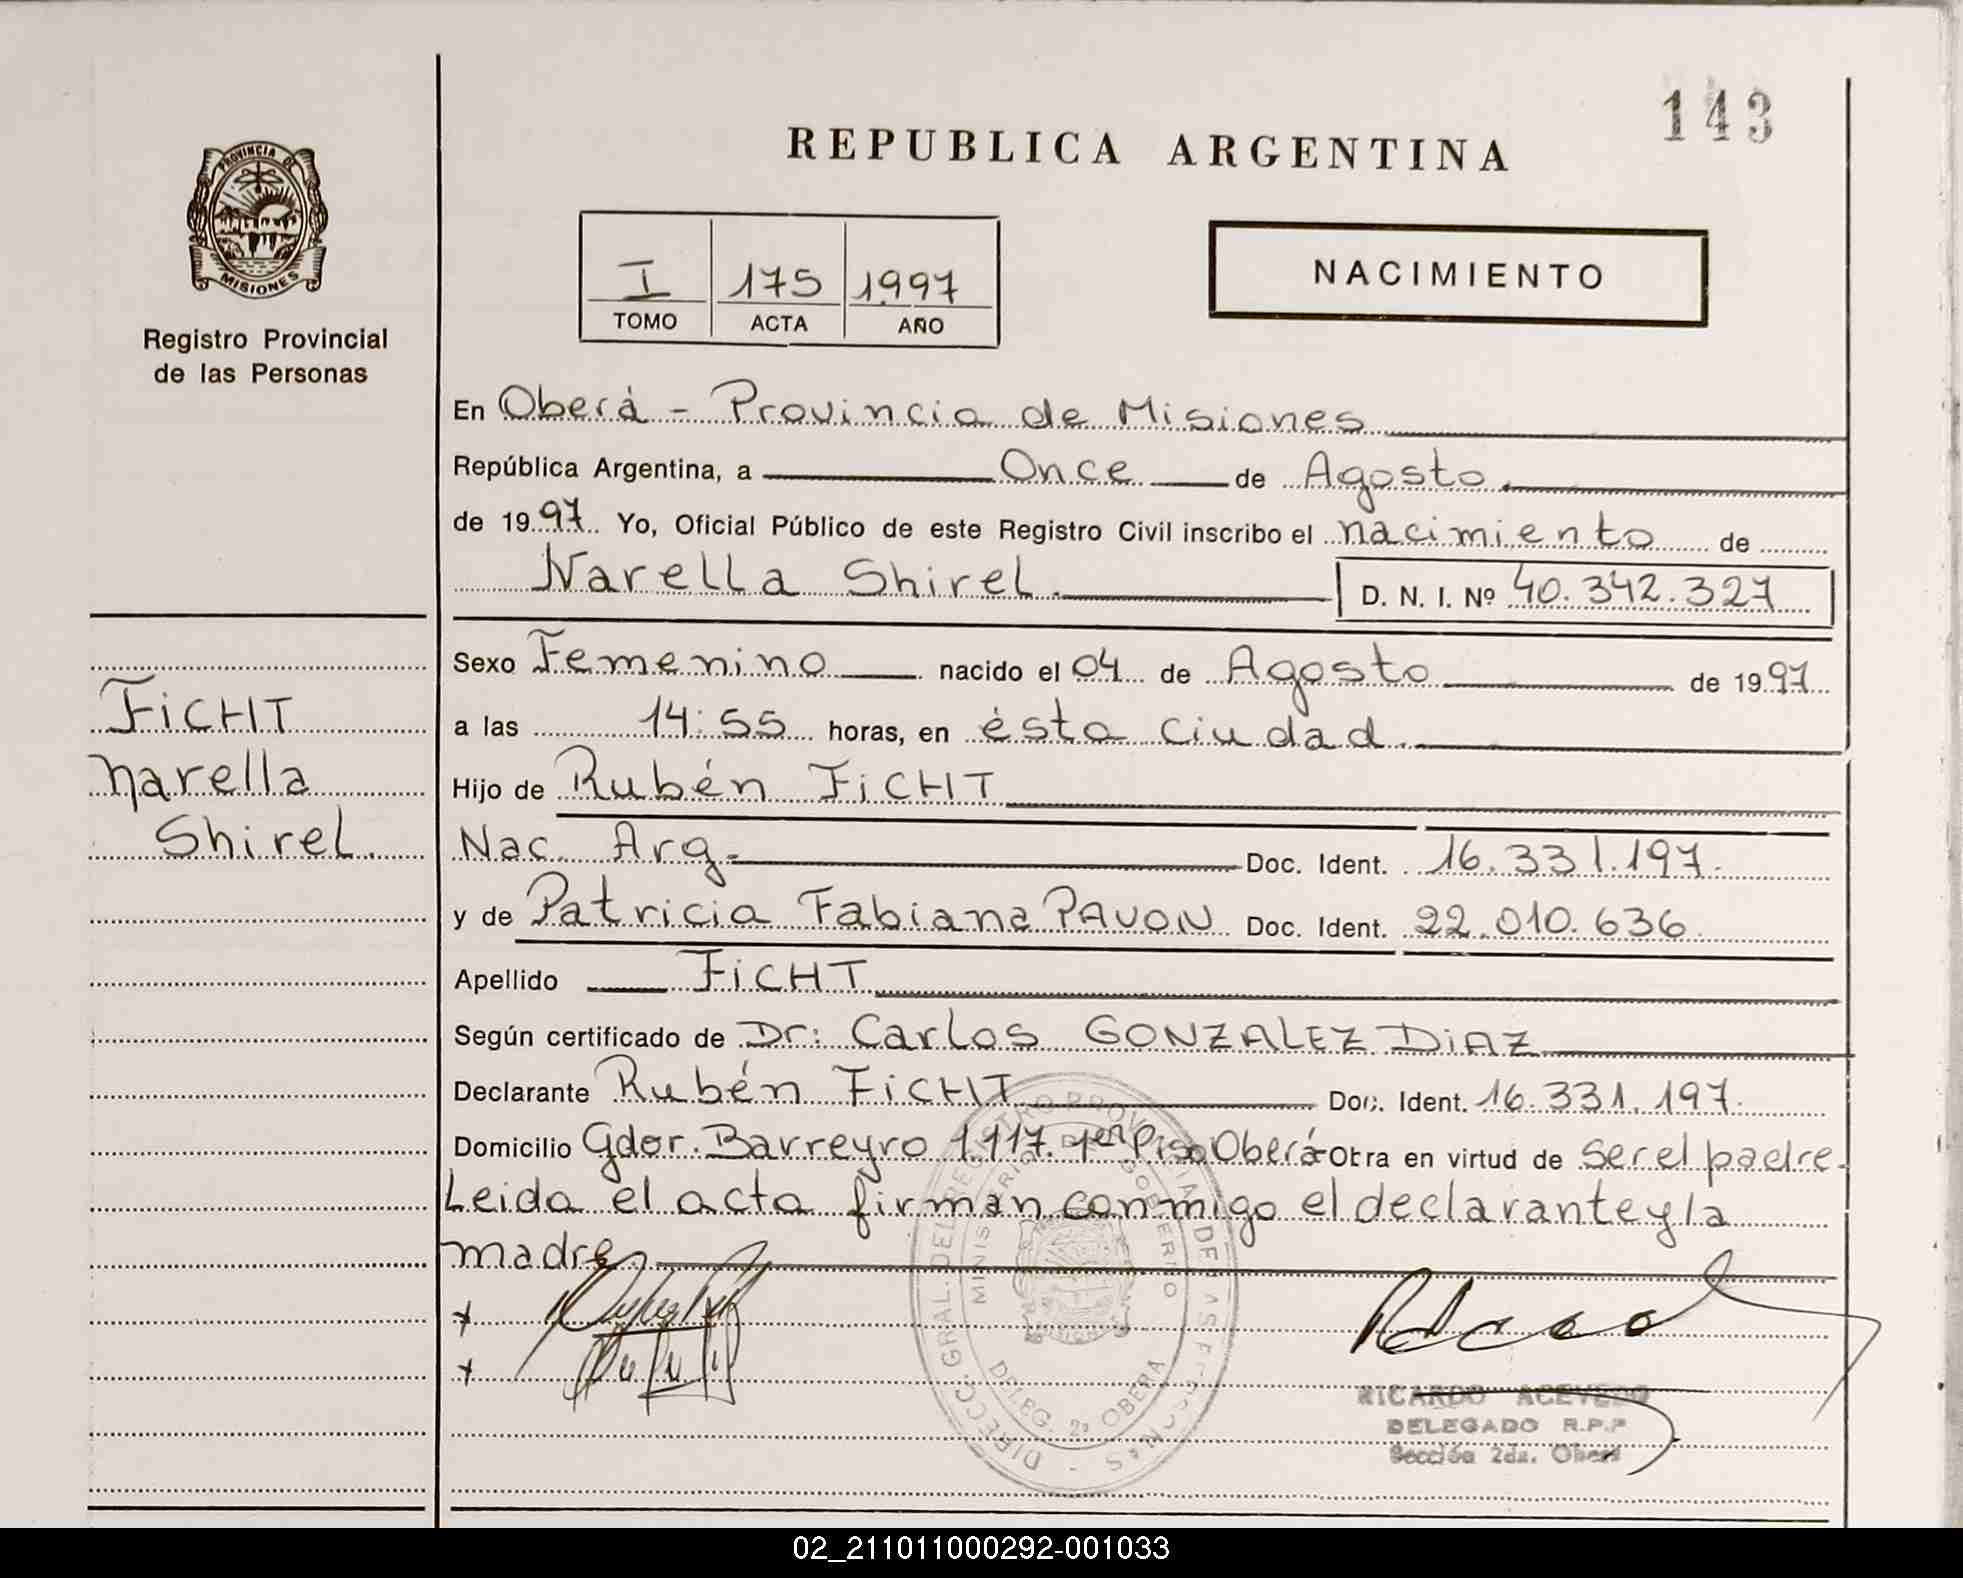 143
REPUBLICA ARGENTINA
PROVINCIA DE
MISIONES
Registro Provincial
de las Personas
I 175 1997
TOMO ACTA AÑO
NACIMIENTO
En Oberá - Provincia de Misiones
República Argentina, a Once de Agosto
de 1997 Yo, Oficial Público de este Registro Civil inscribo el nacimiento de
Narella Shirel. D. N. I. Nº 40.342.327
Sexo Femenino nacido el 04 de Agosto de 1997
a las 14:55 horas, en ésta ciudad.
Hijo de Rubén FICHT
Nac. Arg. Doc. Ident. 16.331.197.
y de Patricia Fabiana PAVON Doc. Ident. 22.010.636
Apellido FICHT
Según certificado de Dr: Carlos GONZALEZ DIAZ
Declarante Rubén FICHT Doc. Ident. 16.331.197.
Domicilio Gdor. Barreyro 1.117. 1er Piso Oberá Obra en virtud de ser el padre.
Leida el acta firman conmigo el declarante y la
madre.
FICHT
Narella
Shirel.
DIRECC. GRAL. DEL REGISTRO PROVINCIAL DE LAS PERSONAS
MINISTERIO DE GOBIERNO
DELEG. 2ª OBERA
RICARDO ACEVEDO
DELEGADO R.P.P
Sección 2da. Oberá
02_211011000292-001033